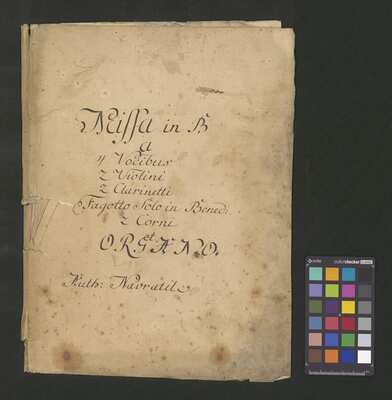 Missa in B
a
4 Vocibus
2 Violini
2 Clarinetti
Fagotto Solo in Bened:
2 Corni
et
ORGANO.
Auth: Navratil
colorchecker